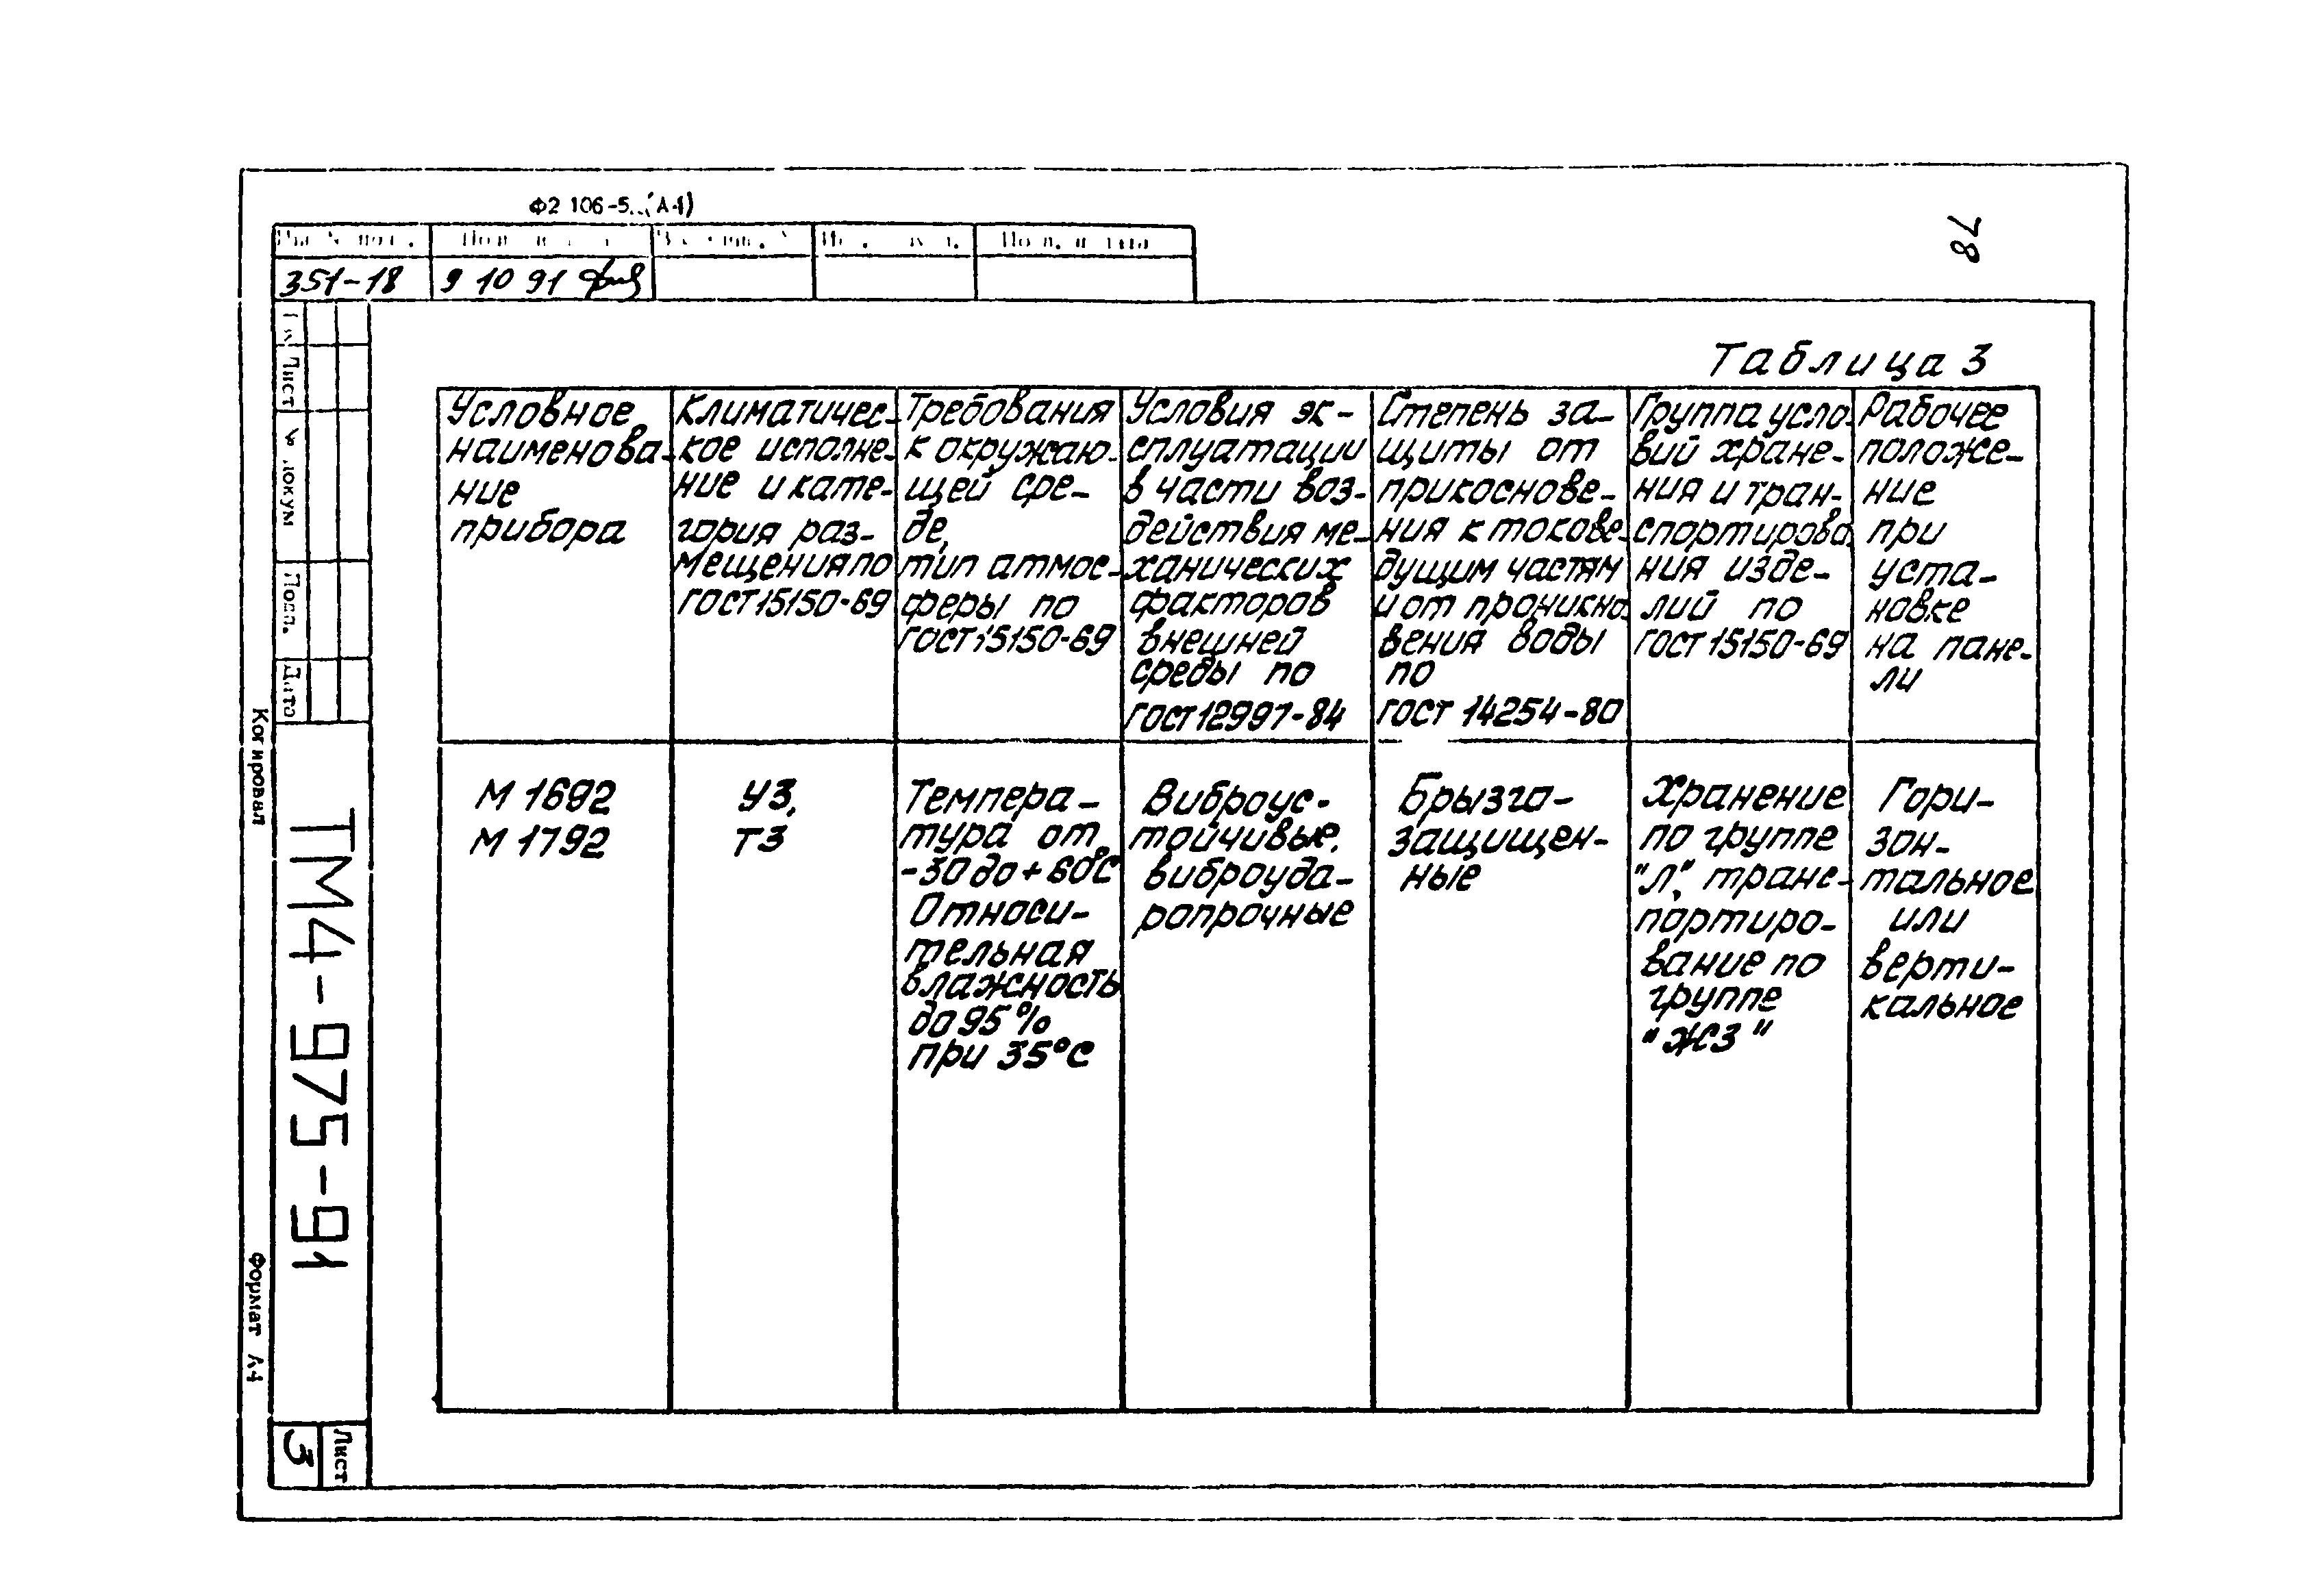 Ф2 106-5..(А4)
78
351-18
9 10 91
Лист
докум
Подп.
Дата
Копировал
ТМ4-975-91
Формат А4
Лист
3
Таблица 3
Условное
наименова-
ние
прибора
Климатичес-
кое исполне-
ние и кате-
гория раз-
мещения по
ГОСТ 15150-69
Требования
к окружаю-
щей сре-
де,
тип атмос-
феры по
ГОСТ 15150-69
Условия эк-
сплуатации
в части воз-
действия ме-
ханических
факторов
внешней
среды по
ГОСТ 12997-84
Степень за-
щиты от
прикоснове-
ния к токове-
дущим частям
и от проникно-
вения воды
по
ГОСТ 14254-80
Группа усло-
вий хране-
ния и тран-
спортирова-
ния изде-
лий по
ГОСТ 15150-69
Рабочее
положе-
ние
при
уста-
новке
на пане-
ли
М 1692
М 1792
У3,
Т3
Темпера-
тура от
-30 до +60°С
Относи-
тельная
влажность
до 95%
при 35°С
Виброус-
тойчивые,
виброуда-
ропрочные
Брызго-
защищен-
ные
Хранение
по группе
"Л", транс-
портиро-
вание по
группе
"Ж3"
Гори-
зон-
тальное
или
верти-
кальное